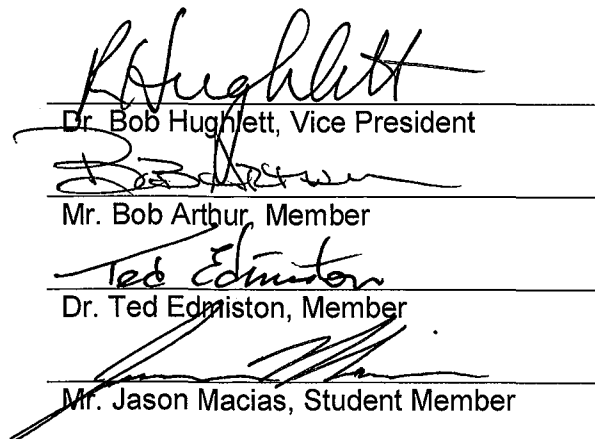 RHughlett
Dr. Bob Hughlett, Vice President
Bob Arthur
Mr. Bob Arthur, Member
Ted Edmiston
Dr. Ted Edmiston, Member
Mr. Jason Macias, Student Member